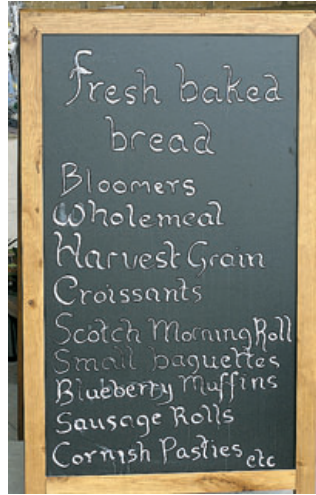 fresh baked
bread
Bloomers
Wholemeal
Harvest Grain
Croissants
Scotch Morning Roll
Small baguettes
Blueberry Muffins
Sausage Rolls
Cornish Pasties etc